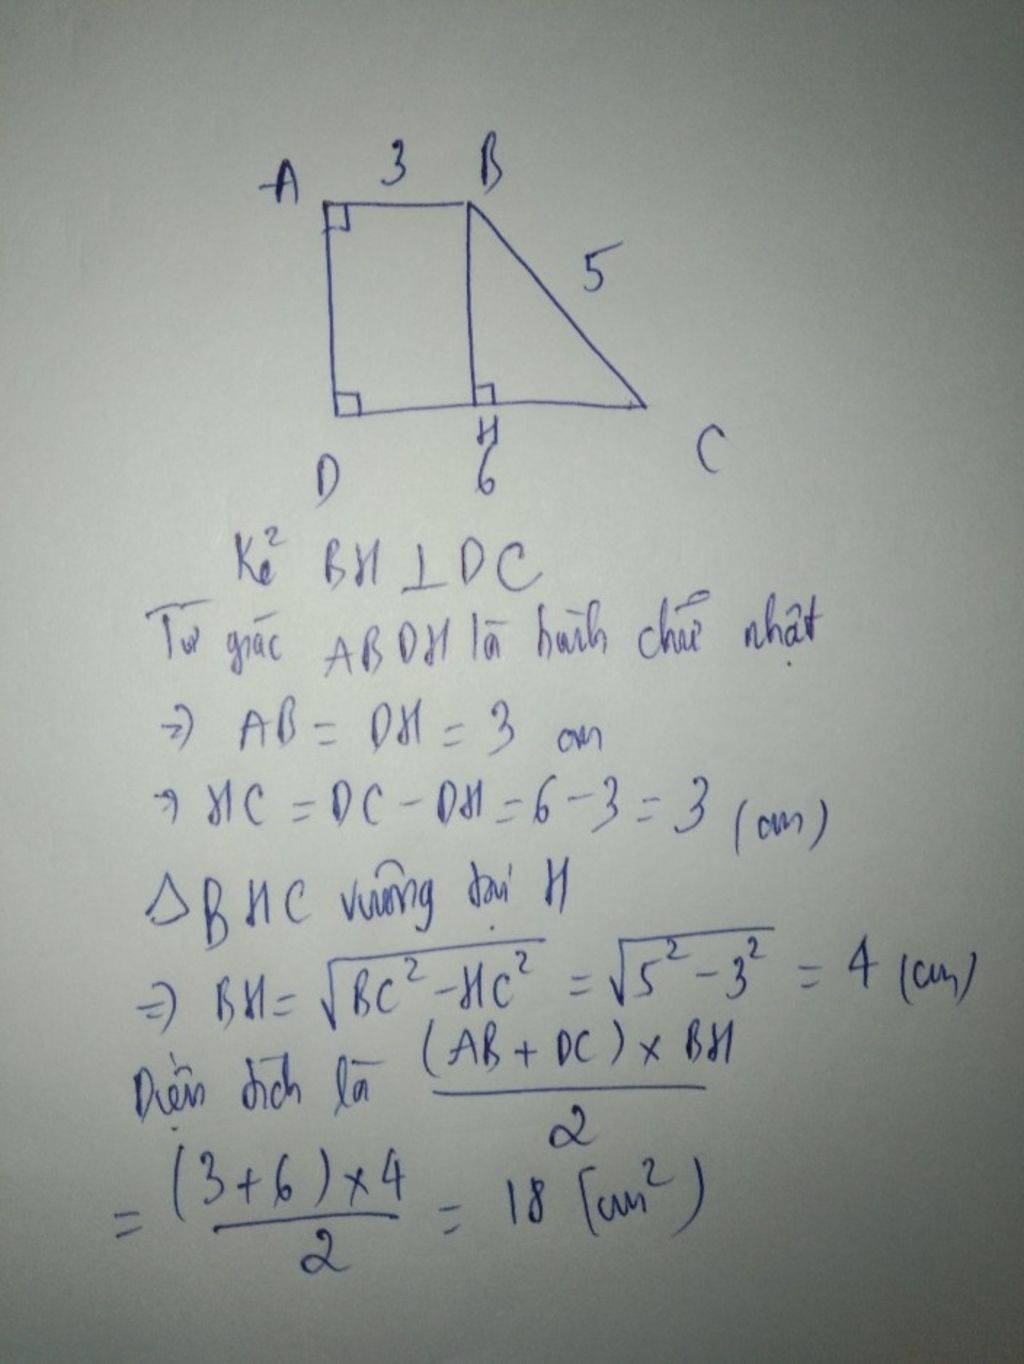 A 3 B
5
D H C
6
Kẻ BH ⊥ DC
Tứ giác ABDH là hình chữ nhật
=> AB = DH = 3 cm
=> HC = DC - DH = 6 - 3 = 3 (cm)
△BHC vuông tại H
=> BH = √(BC² - HC²) = √(5² - 3²) = 4 (cm)
Diện tích là (AB + DC) × BH / 2
= (3 + 6) × 4 / 2 = 18 (cm²)